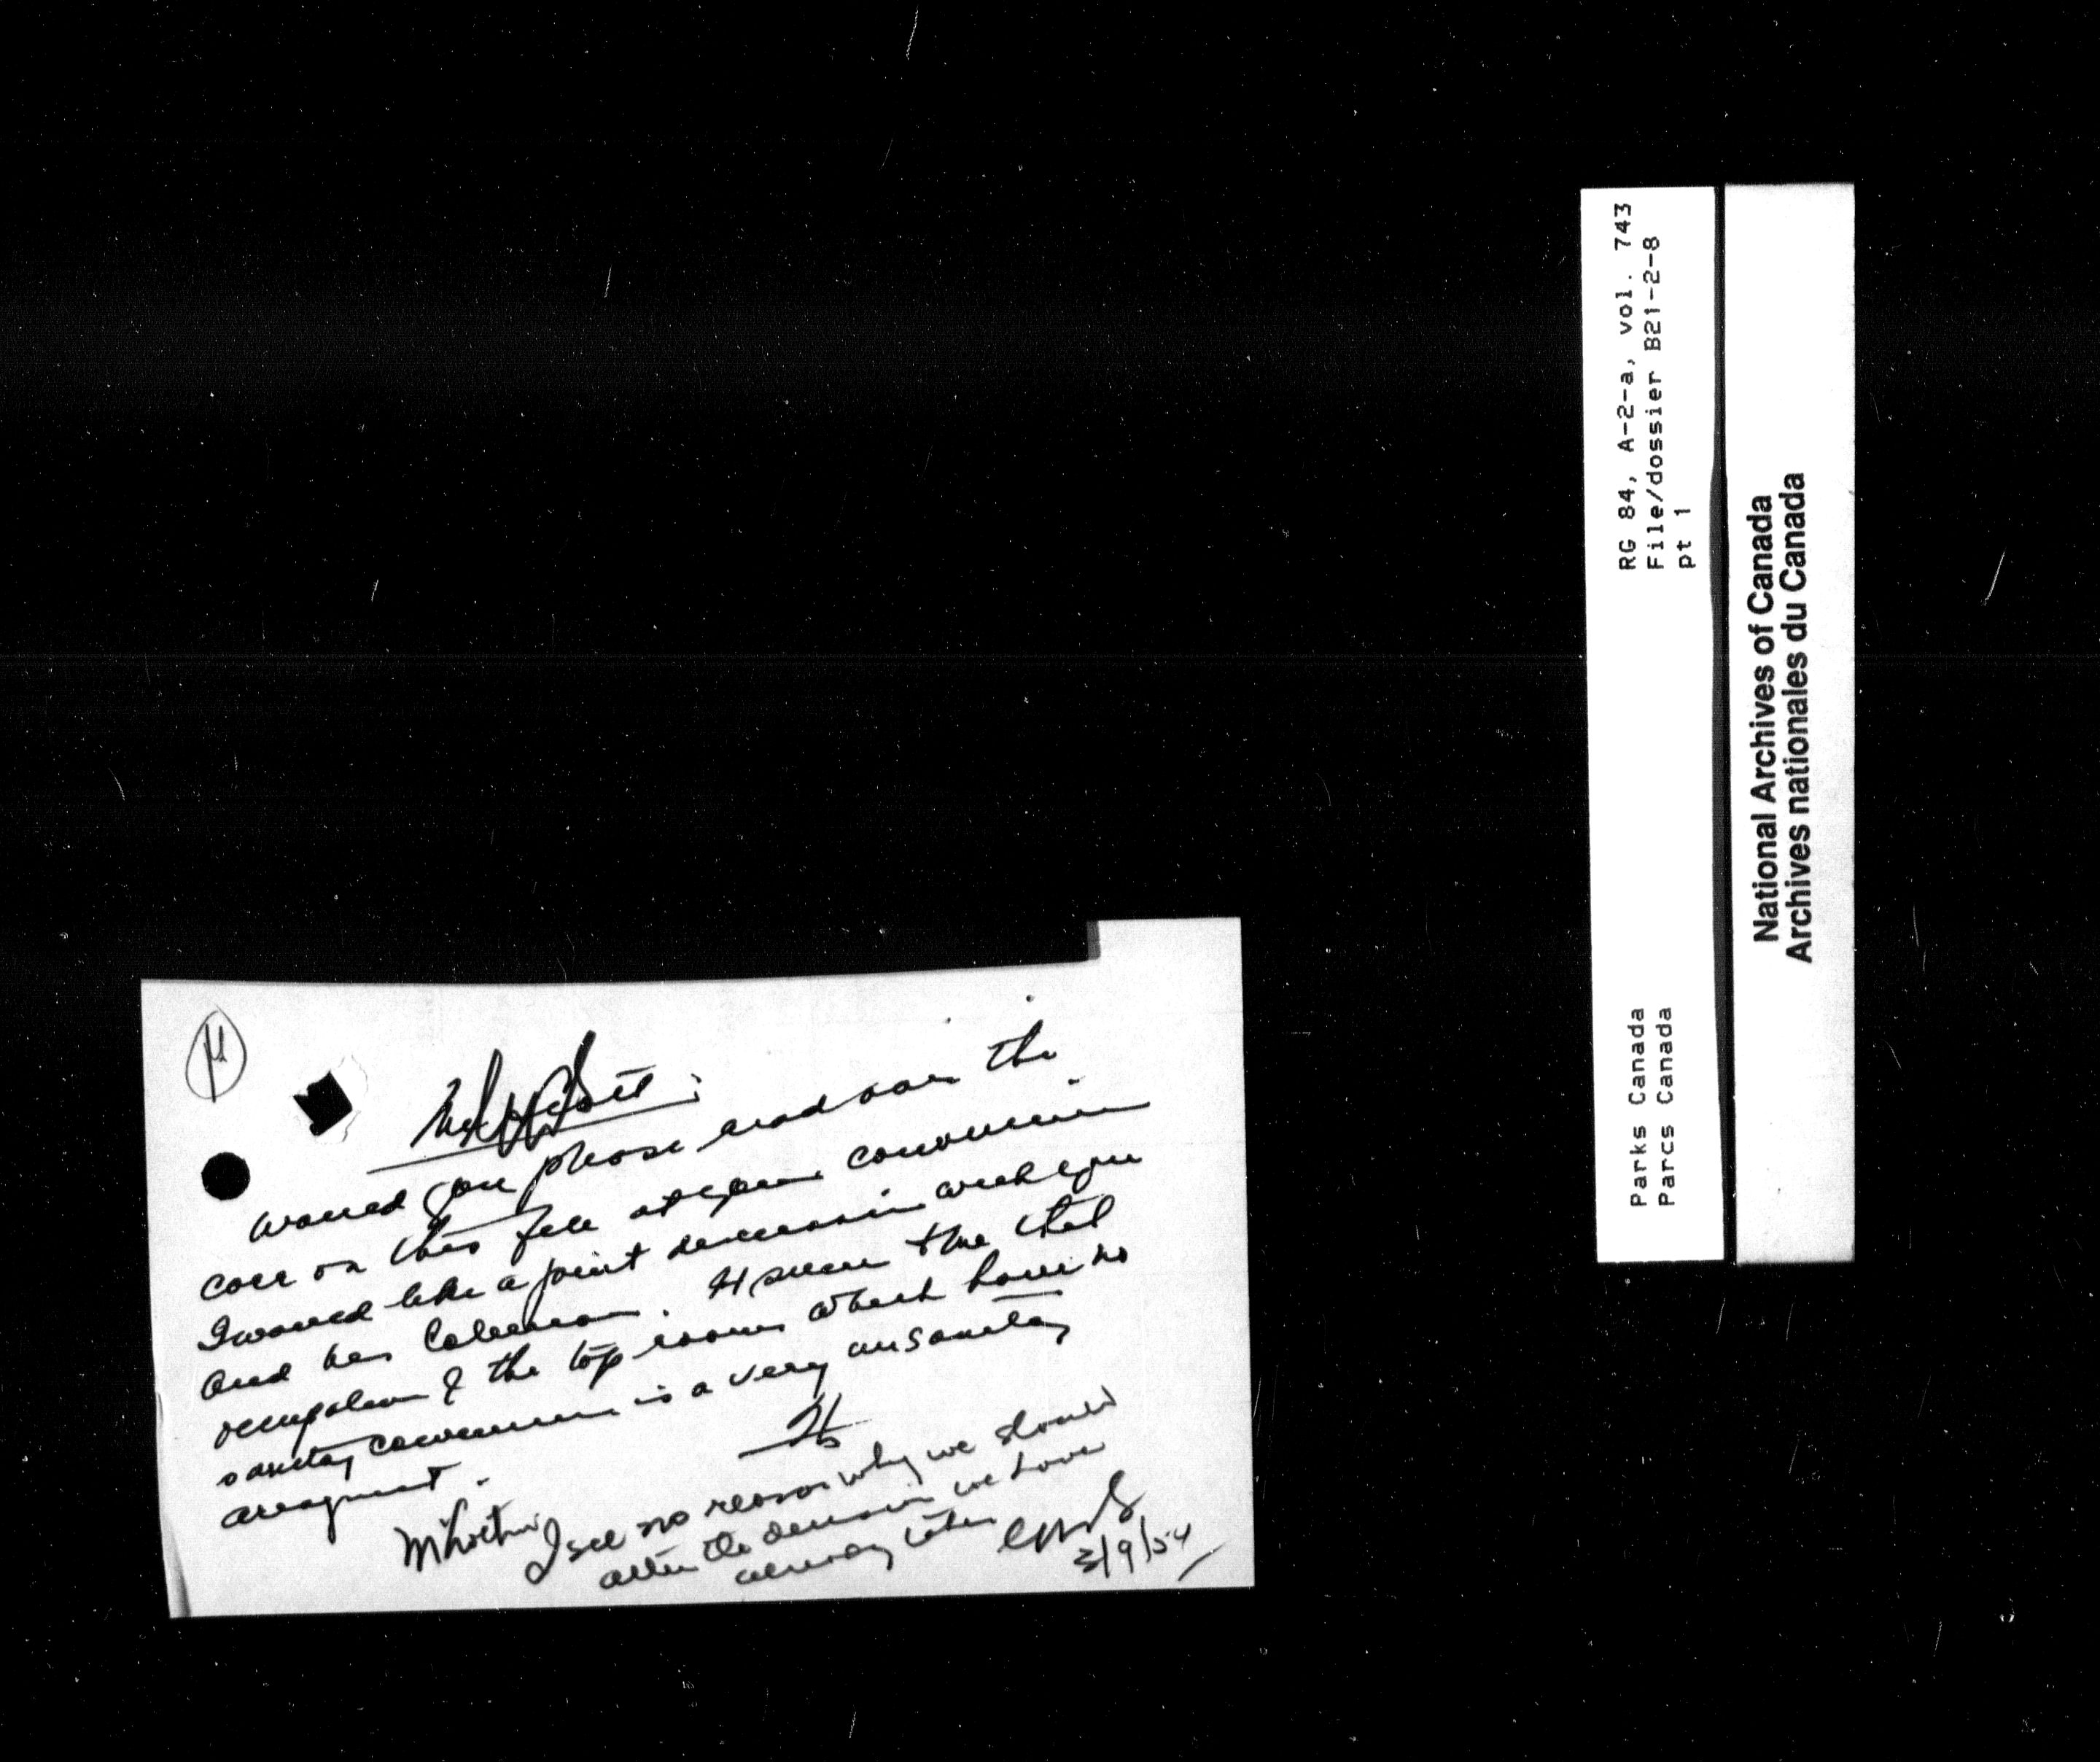 Would you please read over the
corr on this file at your convenience
I would like a joint discussion with you
and Mr Coleman. It seems to me that
occupation of the top rooms which have no
sanitary convenience is a very unsanitary
arrangement.
I see no reason why we should
alter the decision we have
already taken
3/9/54
RG 84, A-2-a, vol. 743
File/dossier B21-2-8
pt 1
Parks Canada
Parcs Canada
National Archives of Canada
Archives nationales du Canada